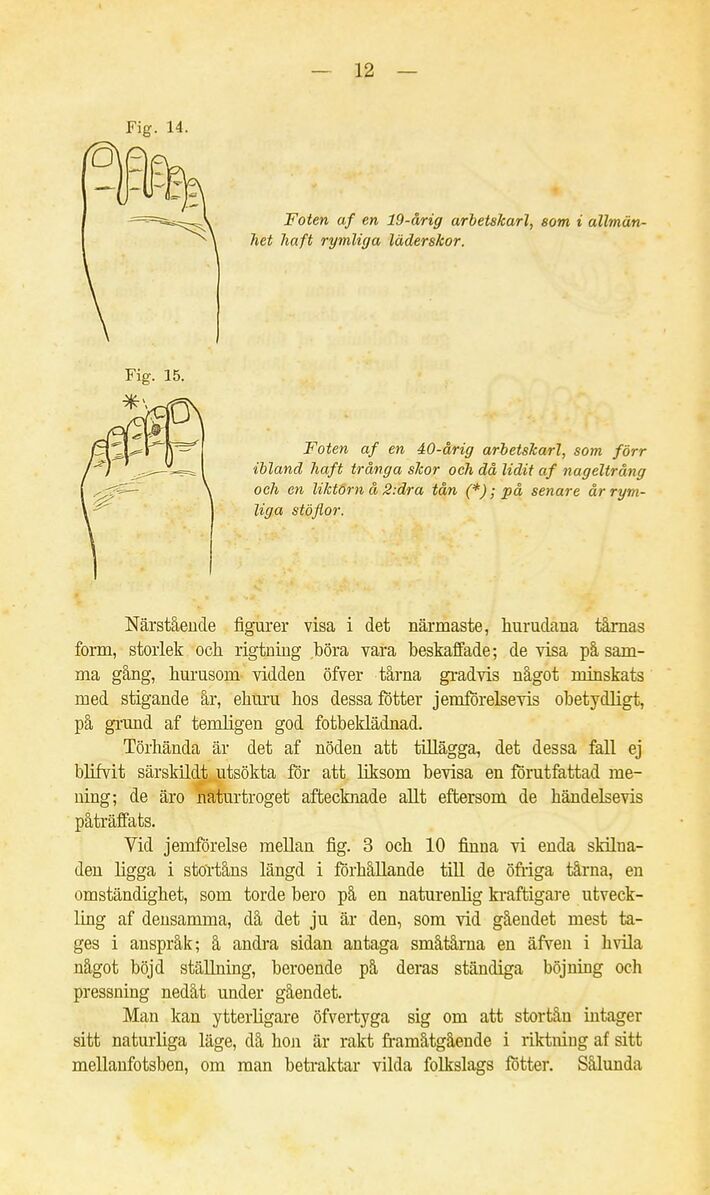 — 12 —
Fig. 14.
Foten af en 19-årig arbetskarl, som i allmän-
het haft rymliga läderskor.
Fig. 15.
*
Foten af en 40-årig arbetskarl, som förr
ibland haft trånga skor och då lidit af nageltrång
och en liktörn å 2:dra tån (*); på senare år rym-
liga stöflor.
Närstående figurer visa i det närmaste, hurudana tårnas
form, storlek och rigtning böra vara beskaffade; de visa på sam-
ma gång, hurusom vidden öfver tårna gradvis något minskats
med stigande år, ehuru hos dessa fötter jemförelsevis obetydligt,
på grund af temligen god fotbeklädnad.
Törhända är det af nöden att tillägga, det dessa fall ej
blifvit särskildt utsökta för att liksom bevisa en förutfattad me-
ning; de äro naturtroget aftecknade allt eftersom de händelsevis
påträffats.
Vid jemförelse mellan fig. 3 och 10 finna vi enda skilna-
den ligga i stortåns längd i förhållande till de öfriga tårna, en
omständighet, som torde bero på en naturenlig kraftigare utveck-
ling af densamma, då det ju är den, som vid gåendet mest ta-
ges i anspråk; å andra sidan antaga småtårna en äfven i hvila
något böjd ställning, beroende på deras ständiga böjning och
pressning nedåt under gåendet.
Man kan ytterligare öfvertyga sig om att stortån intager
sitt naturliga läge, då hon är rakt framåtgående i riktning af sitt
mellanfotsben, om man betraktar vilda folkslags fötter. Sålunda